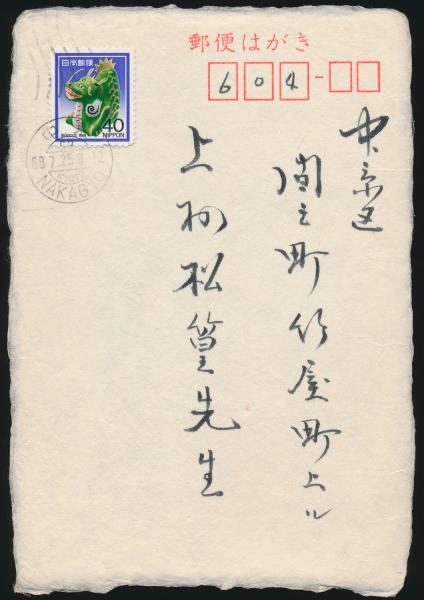 郵便はがき
604
日本郵便
40
NIPPON
88.7.25.8-12
KYOTO
NAKAGYO
中京区
間之町竹屋町上ル
上村松篁先生